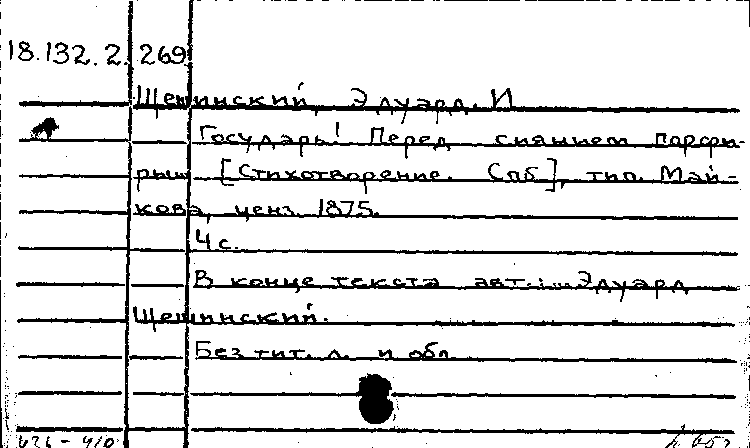 18.132.2.269
Щепинский, Эдуард. И
Государь! Перед сиянием порфи-
ры [Стихотворение. Спб], тип. Май-
кова, ценз. 1875.
4 с.
В конце текста авт.: Эдуард
Щепинский.
Без тит. л. и обл.